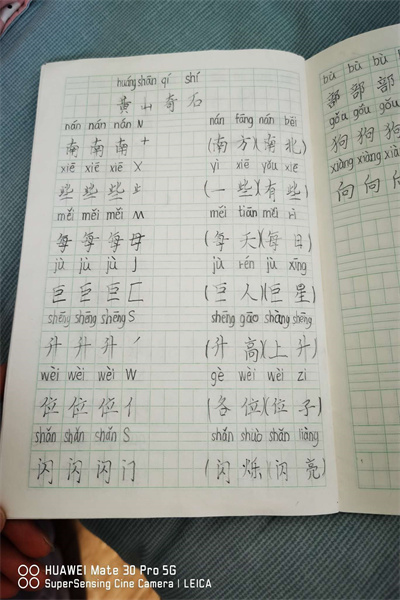 huáng shān qí shí
黄山奇石
nán nán nán N nán fāng nán běi
南南南十(南方)(南北)
xiē xiē xiē X yì xiē yǒu xiē
些些些止(一些)(有些)
měi měi měi M měi tiān měi rì
每每每母(每天)(每日)
jù jù jù J jù rén jù xīng
巨巨巨匚(巨人)(巨星)
shēng shēng shēng S shēng gāo shàng shēng
升升升丿(升高)(上升)
wèi wèi wèi W gè wèi wèi zi
位位位亻(各位)(位子)
shǎn shǎn shǎn S shǎn shuò shǎn liàng
闪闪闪门(闪烁)(闪亮)
bù bù bù
部部部
gǒu gǒu gǒu
狗狗狗
xiàng xiàng xiàng
向向向
HUAWEI Mate 30 Pro 5G
SuperSensing Cine Camera | LEICA